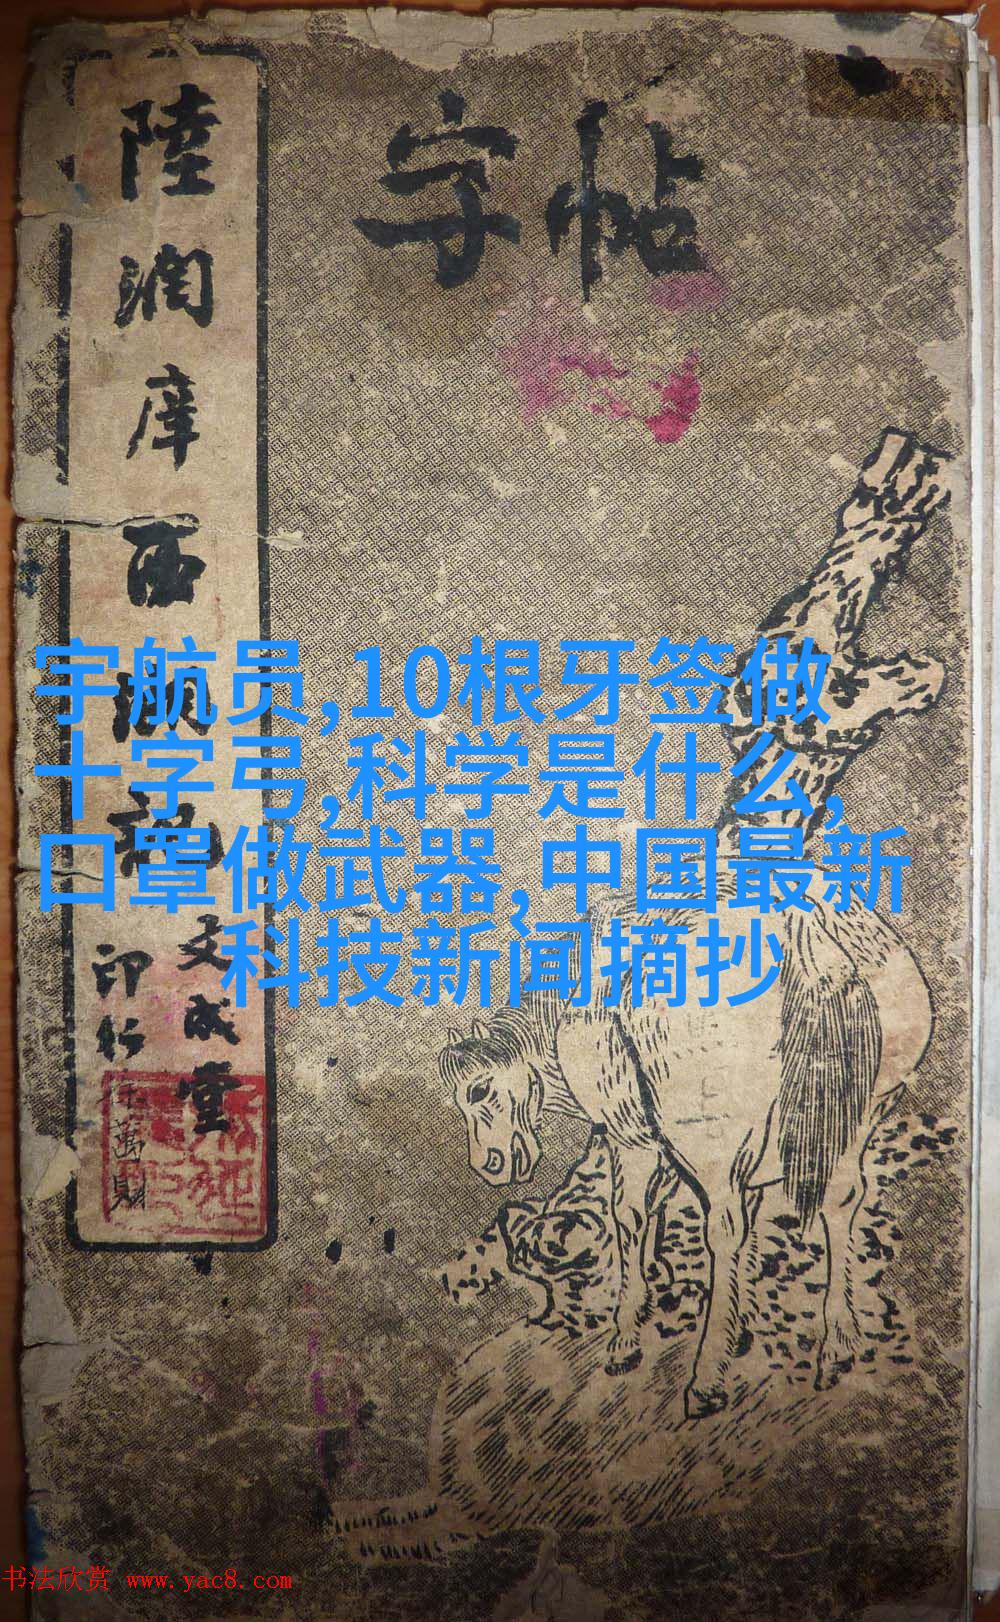 字帖
陸潤庠西湖記
文成堂
印行
徐萬財
宇航员,10根牙签做
十字弓,科学是什么,
口罩做武器,中国最新
科技新闻摘抄
书法欣赏 www.yac8.com